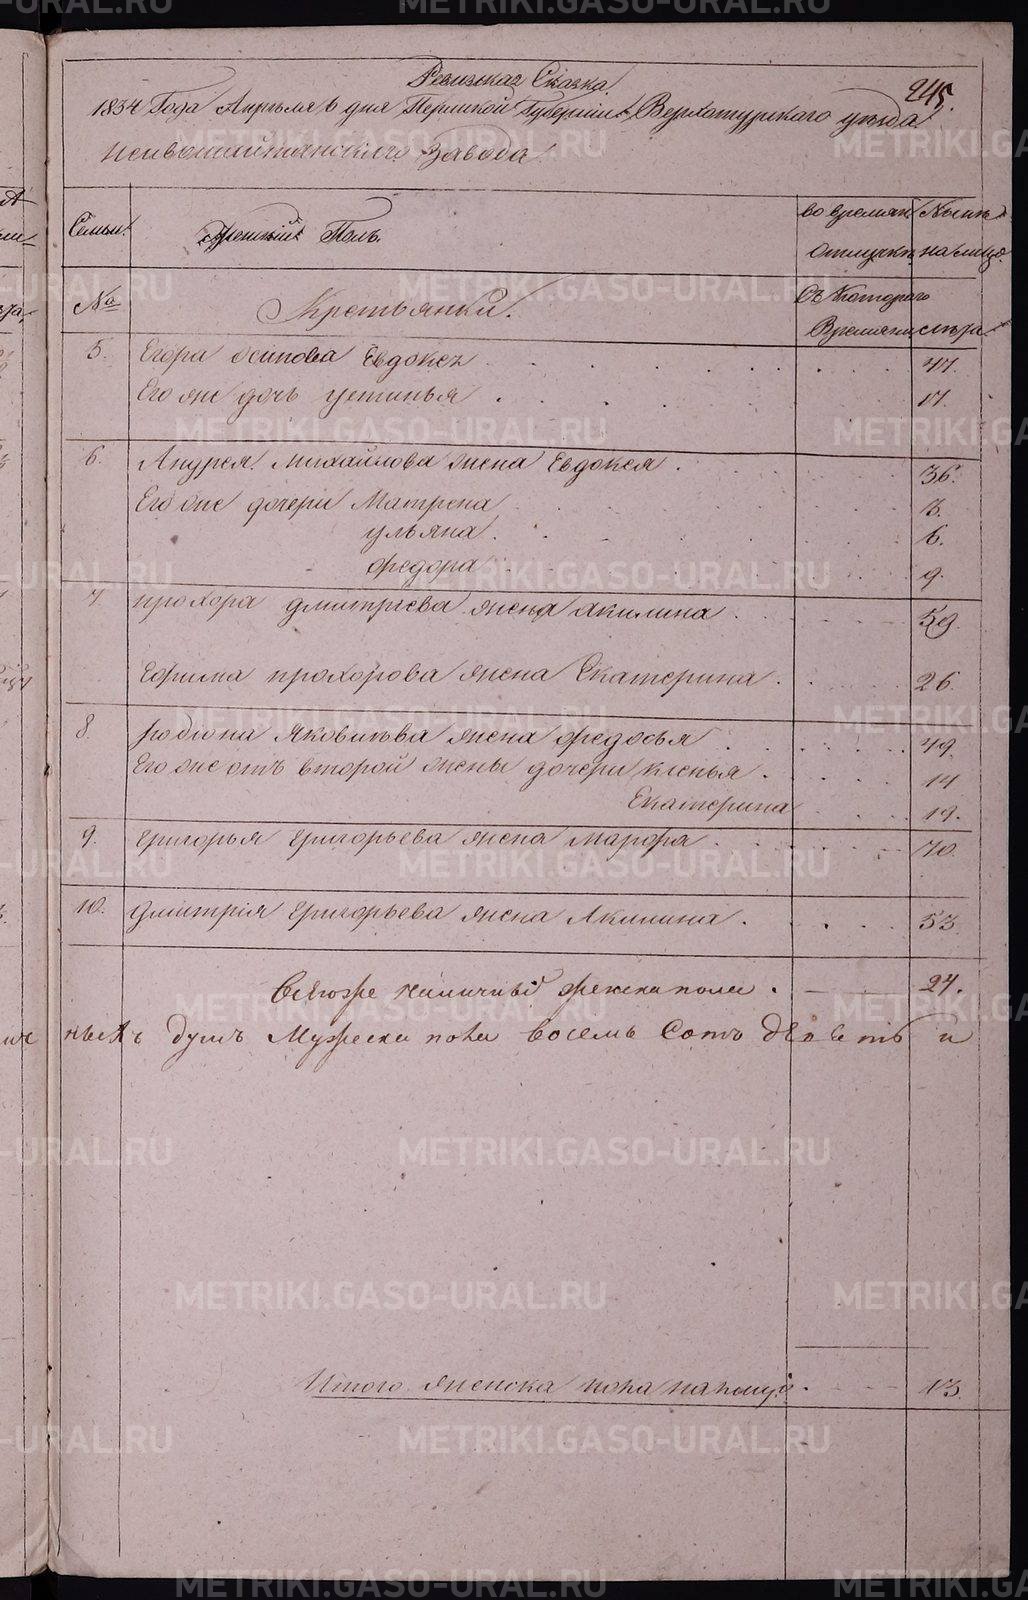 245.
Ревизская Сказка.
1834 Года Апреля 6 дня Пермской Губернии Верхотурского уезда
Невьошайтанскаго Завода
Семьи. Женский Полъ. во времян. Ныне
отлучке на лицо.
№ Крестьянки. Съ Котораго
Времяни лета
5. Егора Осипова Евдокея 47.
Его же дочь устинья 17.
6. Андрея Михайлова жена Евдокея 36.
Его же дочери Матрена 3.
ульяна 6.
федора 9.
7. прохора дмитриева жена акилина 59.
Ефима прохорова жена Екатерина 26.
8. Родиона Яковлева жена федосья 49.
Его же отъ второй жены дочери ксенья 14
Екатерина 19.
9. Григорья Григорьева жена Марфа 70.
10. дмитрія Григорьева жена Акилина 53.
Всѣго же наличныхъ женска пола 24.
ныхъ душъ Мужеска пола восемь Сотъ девять и
Итого женска пола на лицо 13.
METRIKI.GASO-URAL.RU